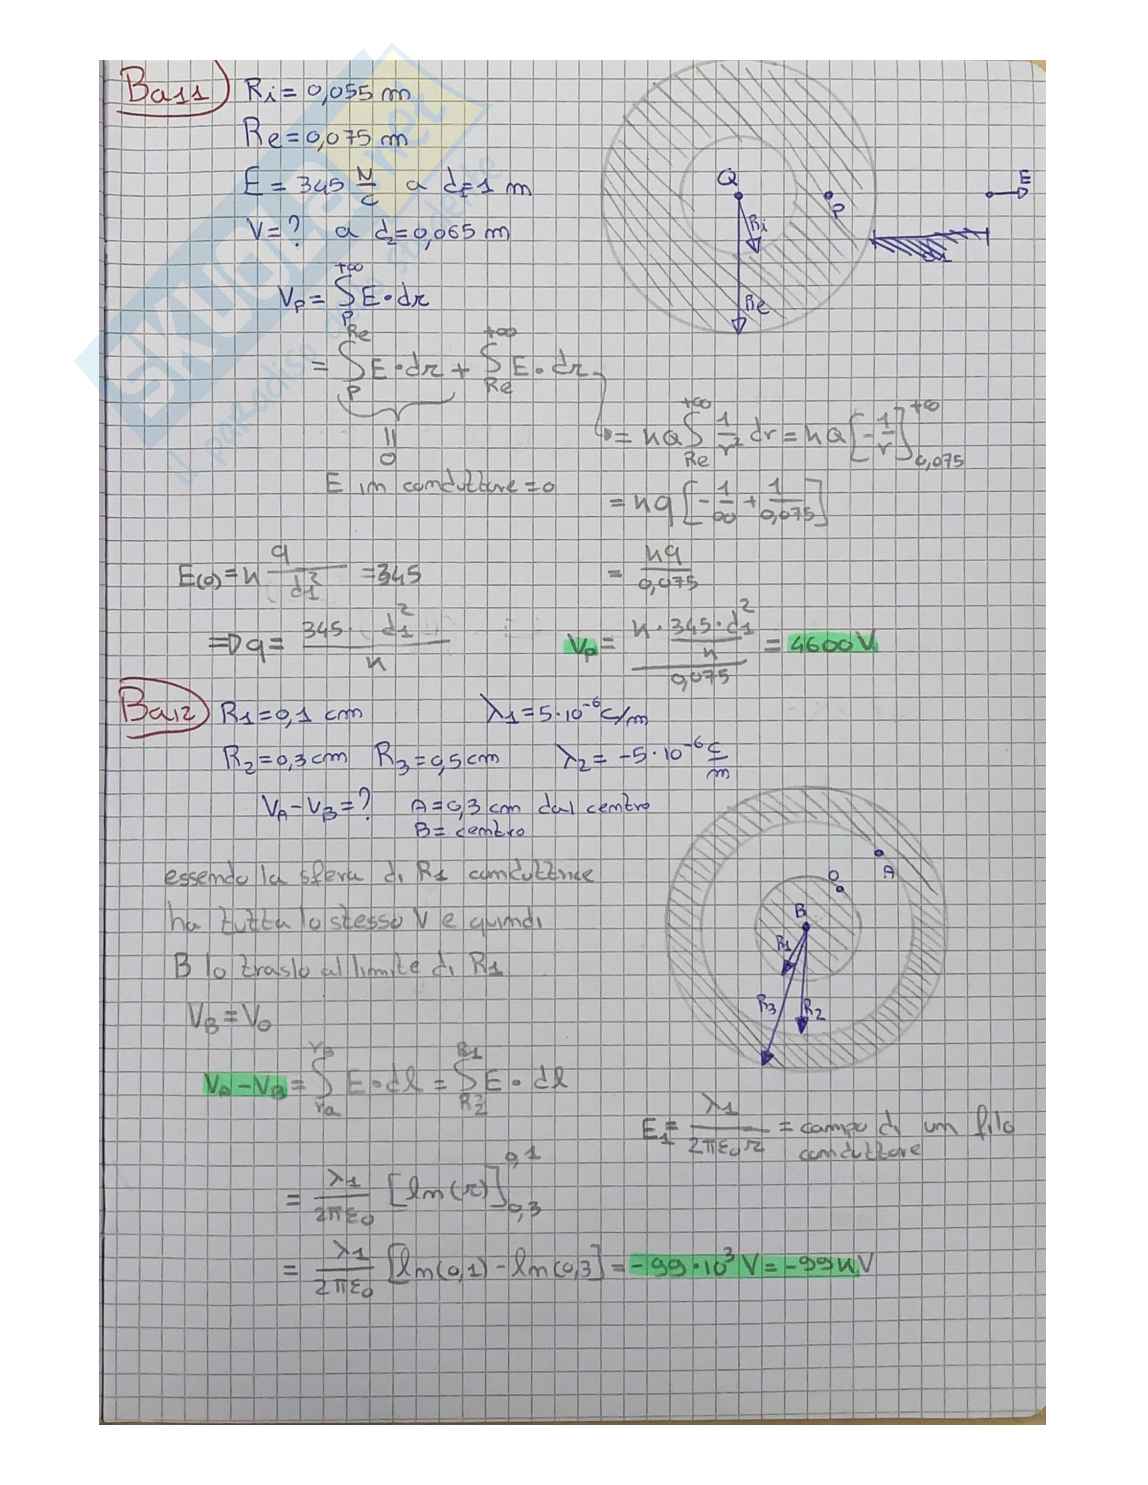 Ba11) Ri = 0,055 m
Re = 0,075 m
E = 345 N/C a d1=1 m
V = ? a d2=0,065 m
Q
P
E
Ri
Re
Vp = ∫_P^{+∞} E · dr
= ∫_P^{Re} E · dr + ∫_{Re}^{+∞} E · dr
= KQ ∫_{Re}^{+∞} 1/r² dr = KQ [-1/r]_{0,075}^{+∞}
0
E in conduttore = 0
= Kq [-1/∞ + 1/0,075]
E(0) = K q/d1² = 345
= Kq/0,075
=> q = 345 · d1² / K
Vp = (K · 345 · d1² / K) / 0,075 = 4600 V
Ba12) R1 = 0,1 cm λ1 = 5·10⁻⁶ C/m
R2 = 0,3 cm R3 = 0,5 cm λ2 = -5·10⁻⁶ C/m
VA - VB = ? A = 0,3 cm dal centro
B = centro
essendo la sfera di R1 conduttrice
ha tutta lo stesso V e quindi
B lo traslo al limite di R1
O
A
B
R1
R3
R2
VB = VO
VA - VB = ∫_{ra}^{rB} E · dl = ∫_{R2}^{R1} E · dl
E1 = λ1/2πε0r = campo di un filo
conduttore
= λ1/2πε0 [ln(r)]_{0,3}^{0,1}
= λ1/2πε0 [ln(0,1) - ln(0,3)] = -99·10³ V = -99 KV
SKUOLA.net